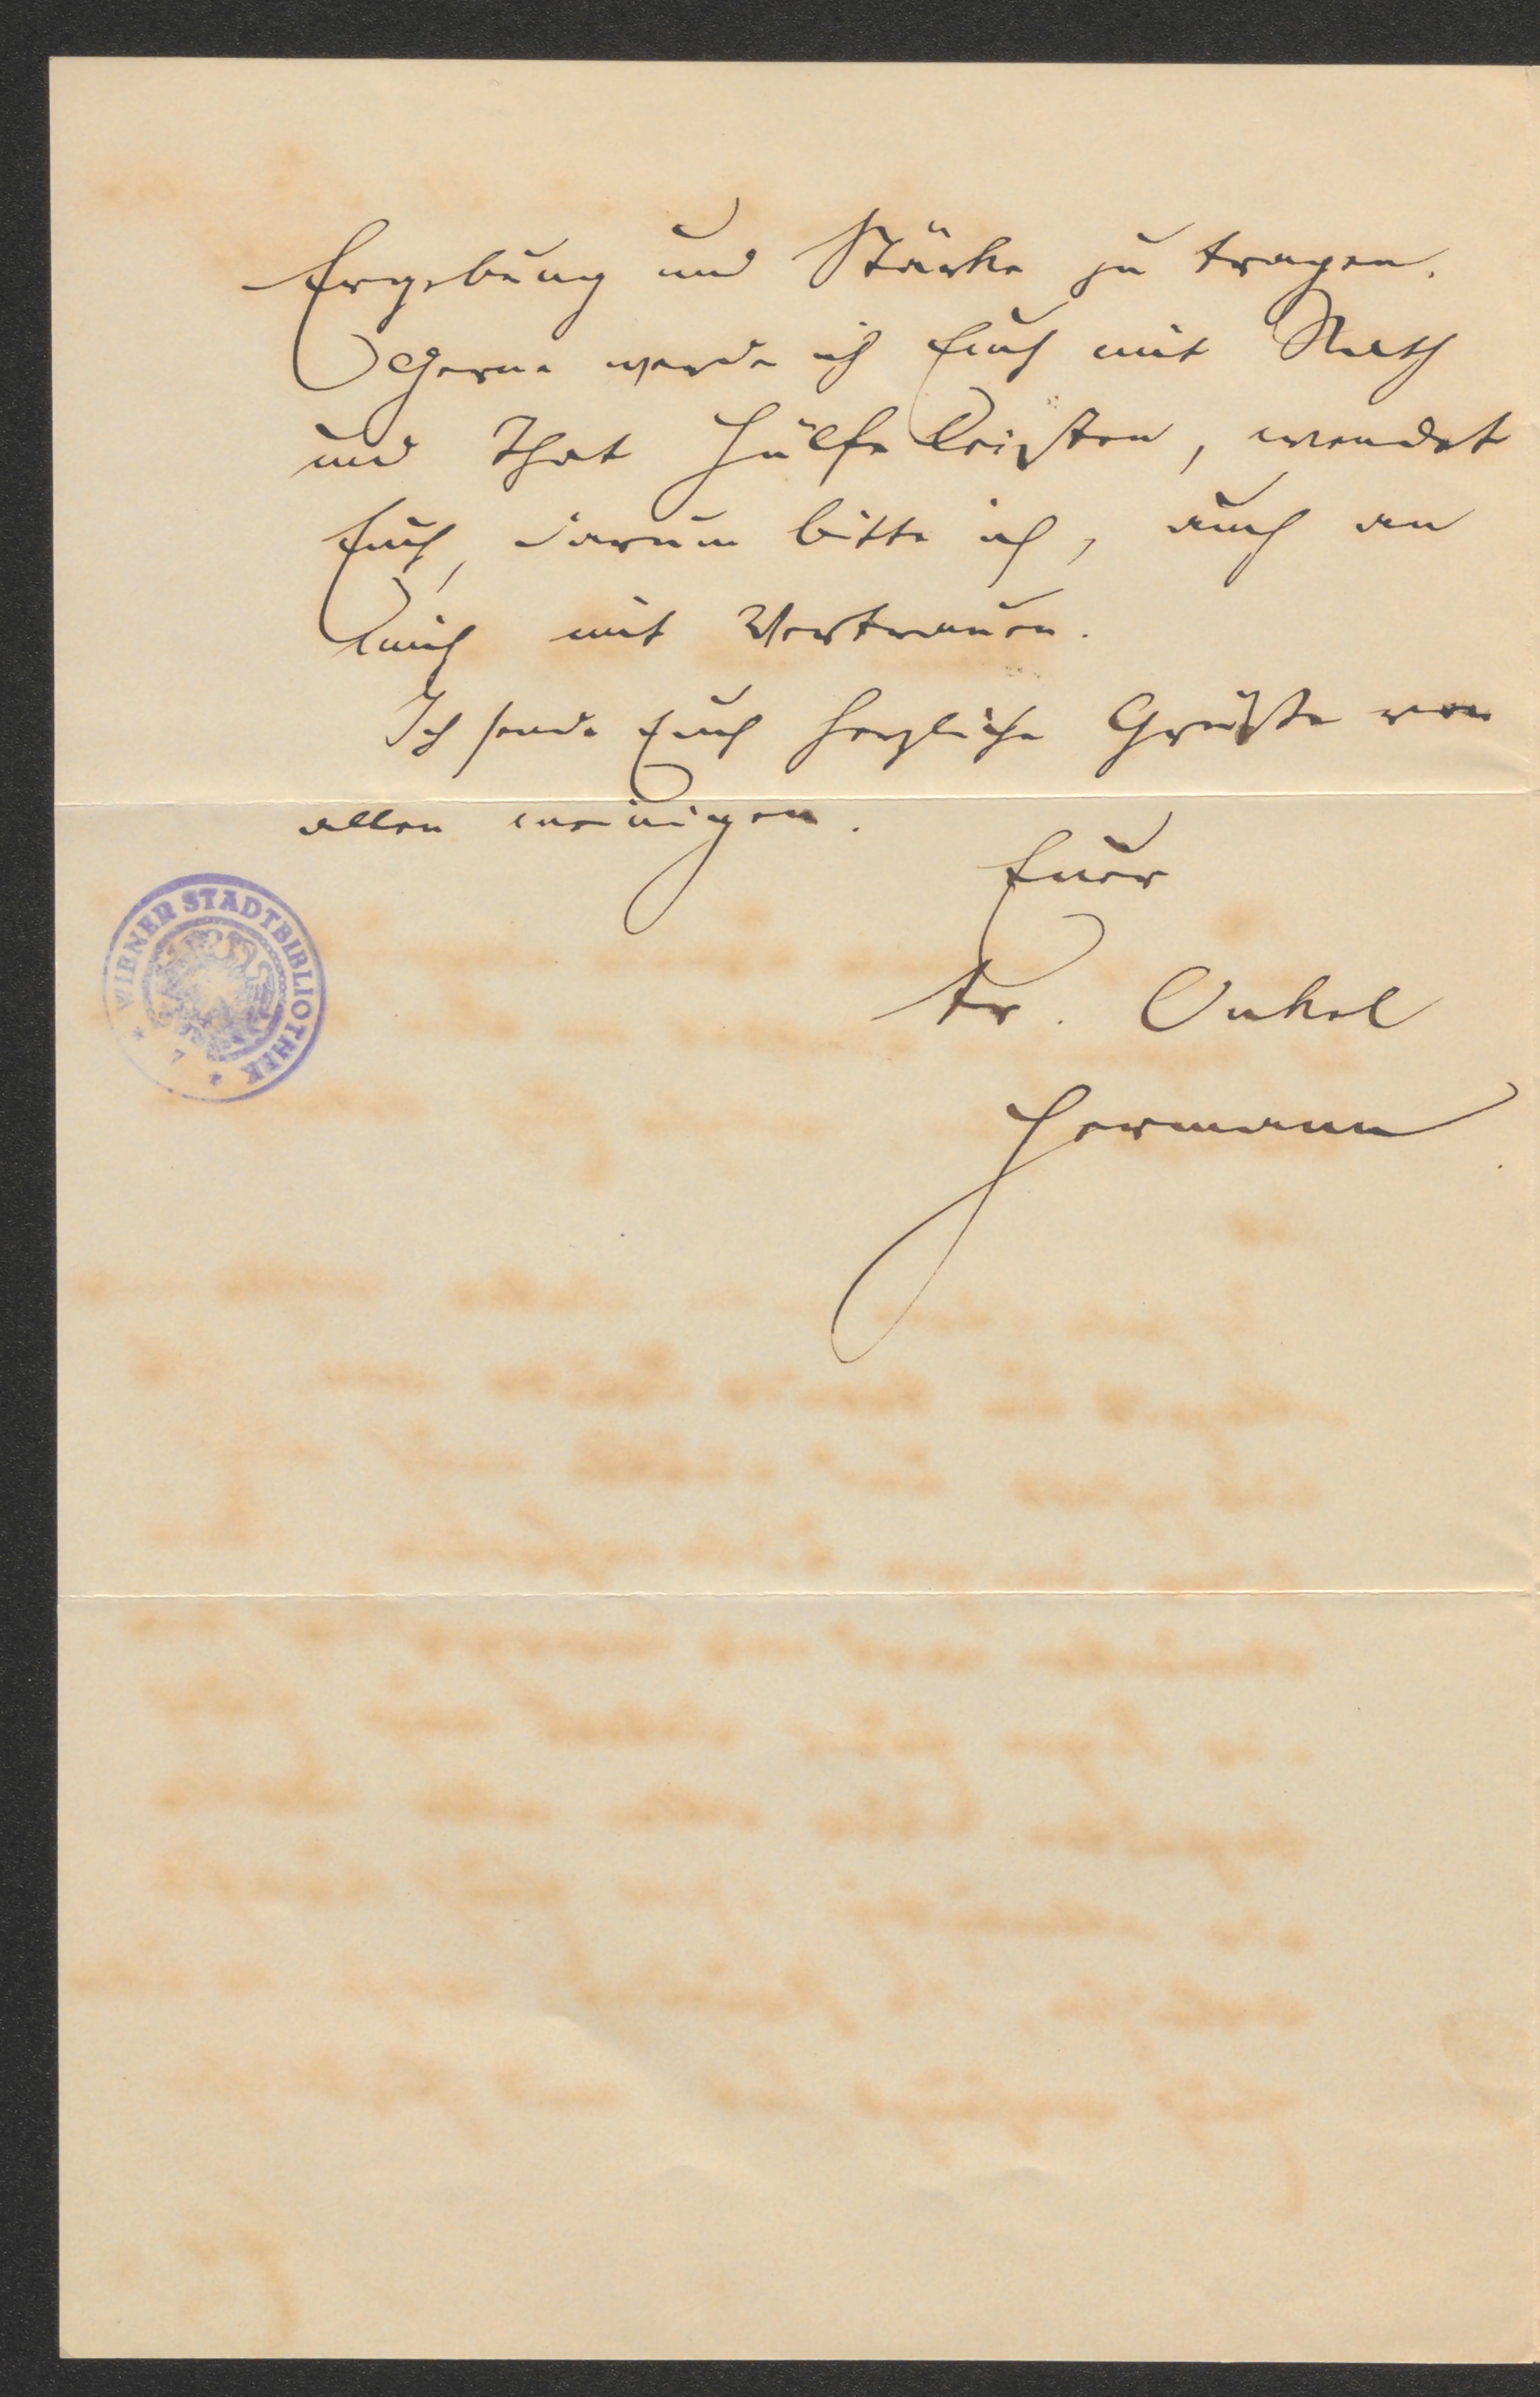 Ergebung und Stärke zu tragen.
Gerne werde ich Euch mit Rath
und That Hülfe leisten, wendet
Euch, darum bitte ich, auch an
mich mit Vertrauen.
Ich sende Euch herzliche Grüße von
allen meinigen.
Euer
tr. Onkel
Hermann
WIENER STADTBIBLIOTHEK
* 7 *